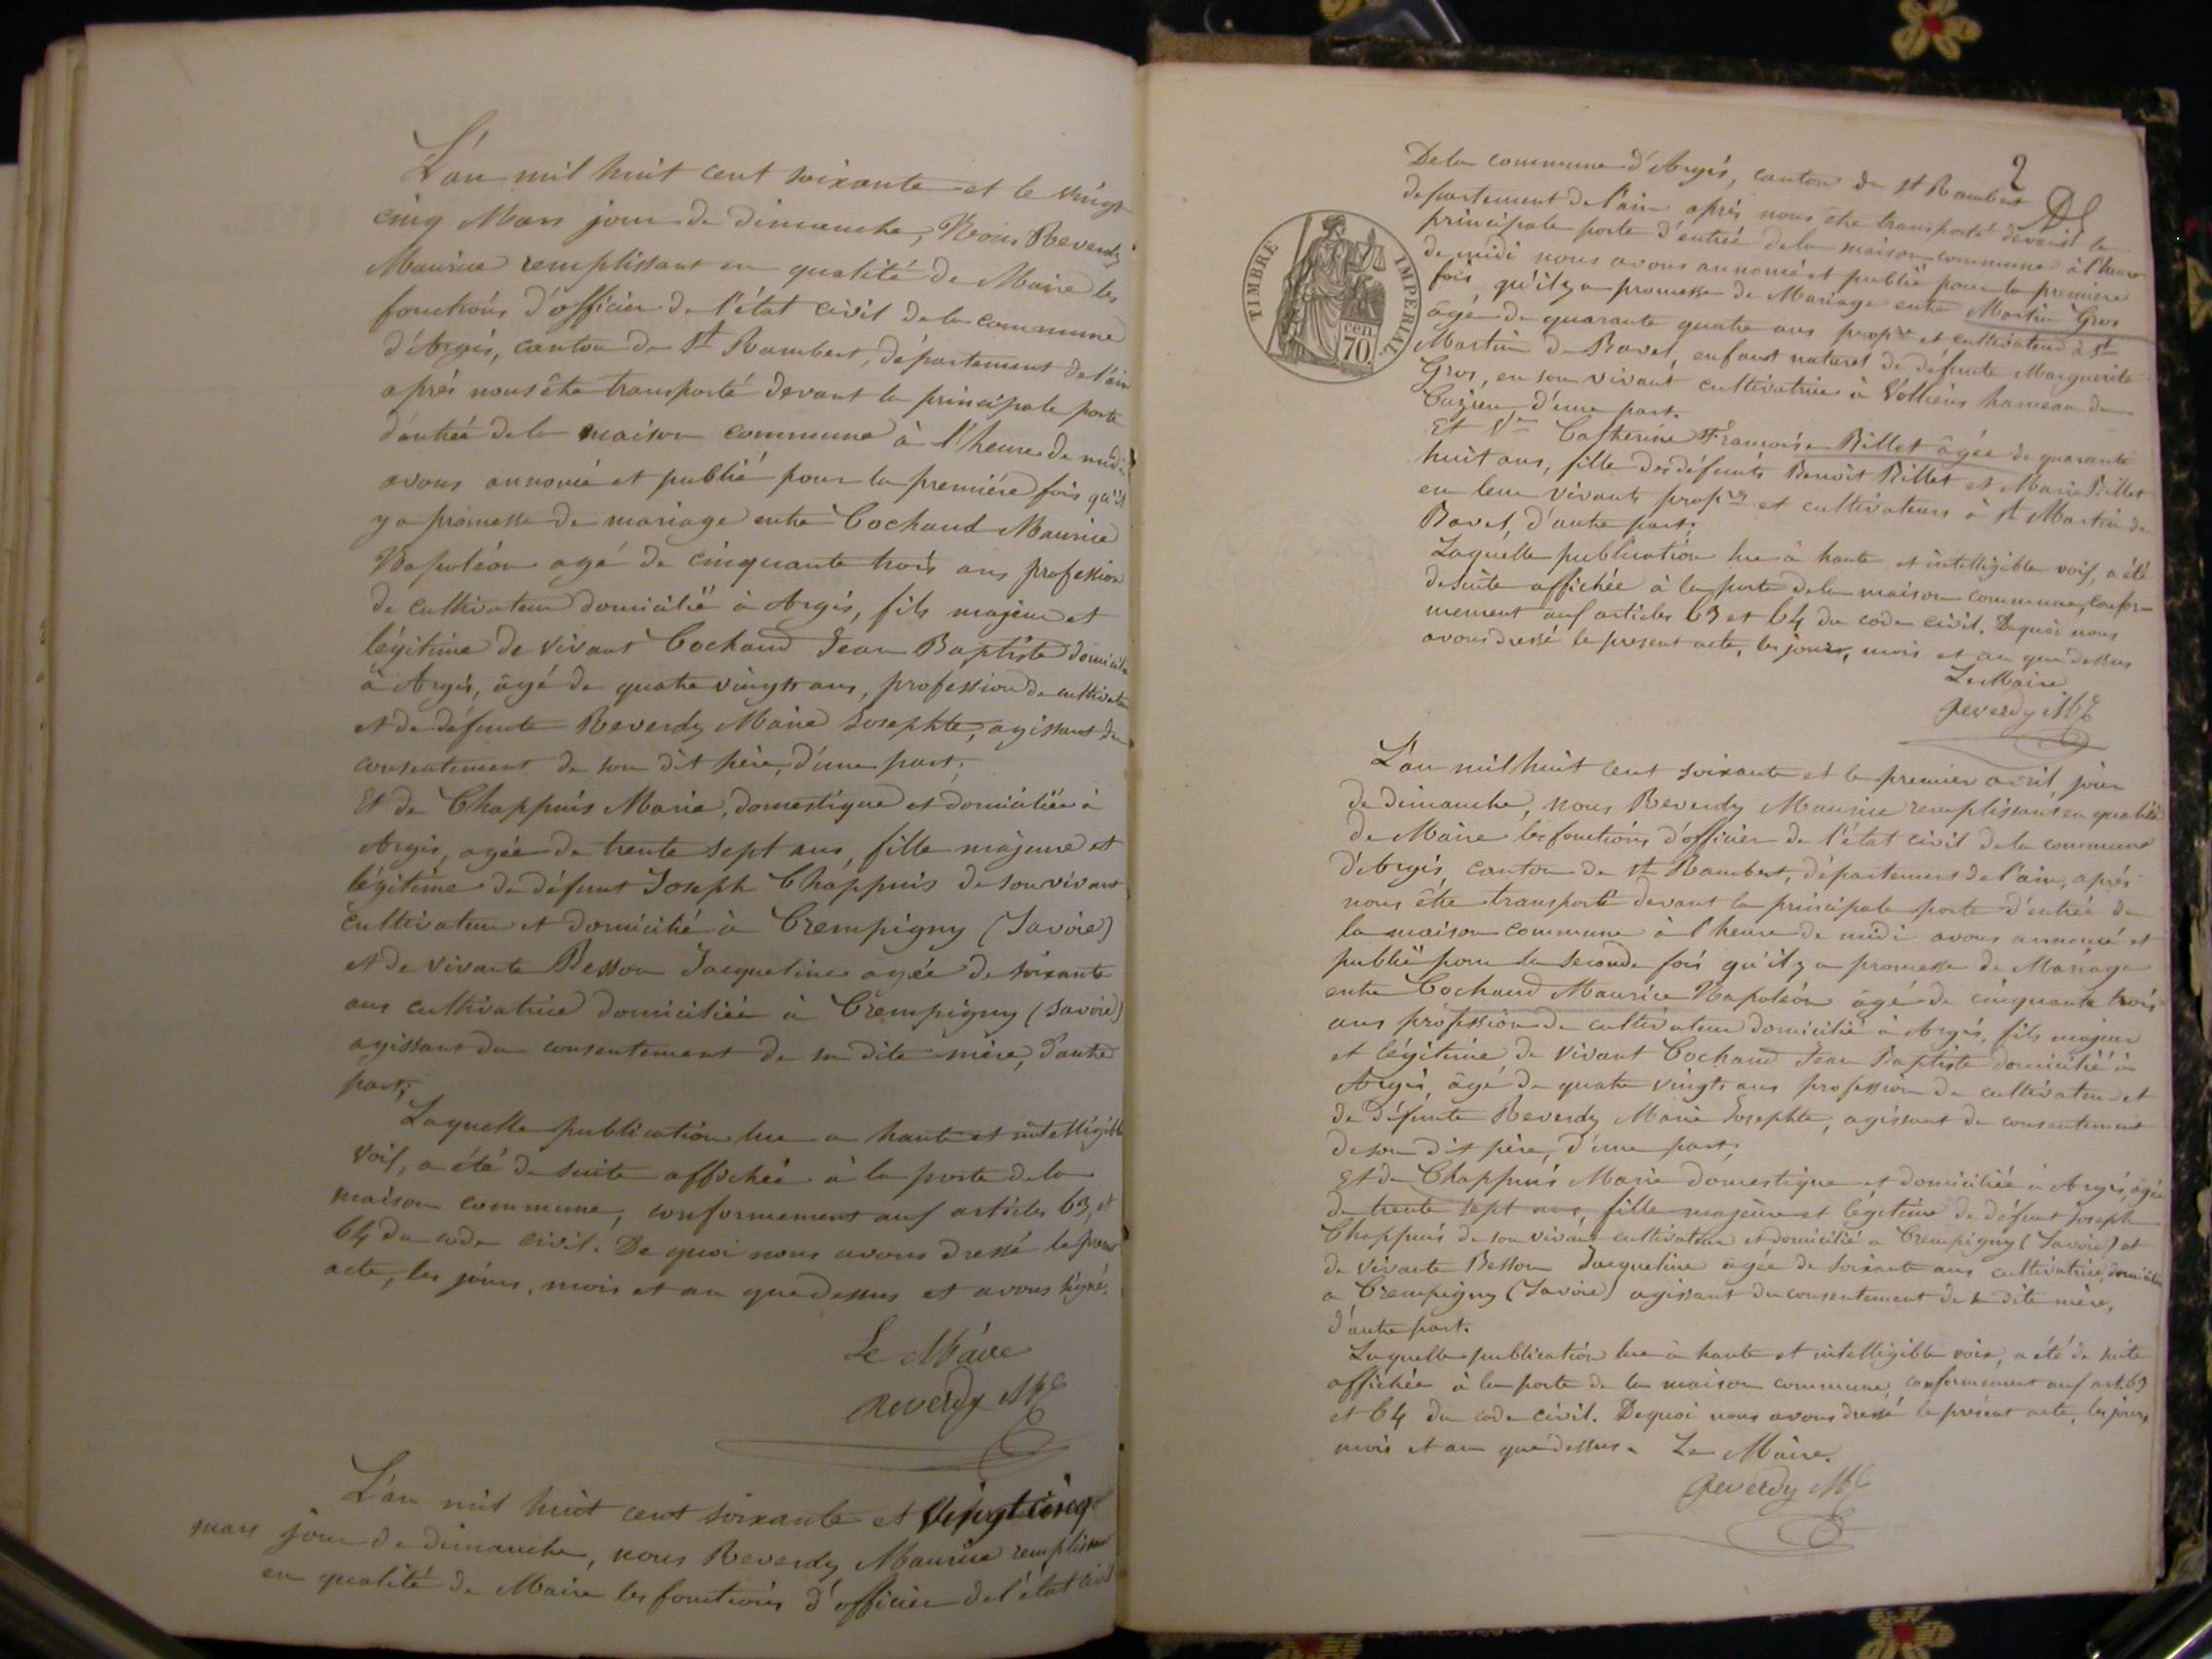 L'an mil huit cent soixante et le vingt
cinq Mars jour de dimanche, Nous Reverdy
Maurice remplissant en qualité de Maire les
fonctions d'officier de l'état civil de la commune
d'Argis, canton de St Rambert, département de l'ain
après nous être transporté devant la principale porte
d'entrée de la maison commune à l'heure de midi
avons annoncé et publié pour la première fois qu'il
y a promesse de mariage entre Cochand Maurice
Napoléon agé de cinquante trois ans profession
de cultivateur domicilié à Argis, fils majeur et
légitime de vivant Cochand Jean Baptiste domicilié
à Argis, âgé de quatre vingts ans, profession de cultivateur
et de défunte Reverdy Marie Josephte, agissant du
consentement de son dit père, d'une part;
Et de Chappuis Marie, domestique et domiciliée à
Argis, agée de trente sept ans, fille majeure et
légitime de défunt Joseph Chappuis de son vivant
cultivateur et domicilié à Crempigny (Savoie)
et de vivante Besson Jacqueline agée de soixante
ans cultivatrice domiciliée à Crempigny (Savoie)
agissant du consentement de sa dite mère, d'autre
part;
Laquelle publication lue a haute et intelligible
voix, a été de suite affichée à la porte de la
maison commune, conformement aux articles 63, et
64 du code civil. De quoi nous avons dressé le present
acte, les jours, mois et an que dessus et avons signé.
Le Maire
Reverdy Mce
L'an mil huit cent soixante et vingt cinq
mars jour de dimanche, nous Reverdy Maurice remplissant
en qualité de Maire les fonctions d'officier de l'état civil
2
De la commune d'Argis, canton de St Rambert
departement de l'ain après nous être transporté devant la
principale porte d'entrée de la maison commune à l'heure
de midi nous avons annoncé et publié pour la première
fois qu'il y a promesse de Mariage entre Martin Gros
âgé de quarante quatre ans propre et cultivateur à St
Martin de Bavel, enfant naturel de défunte Marguerite
Gros, en son vivant cultivatrice à Vollien hameau de
Cuzieu, d'une part.
Et Catherine Françoise Billet âgée de quarante
huit ans, fille des défunts Benoit Billet et Marie Billet
en leur vivants propres et cultivateurs à St Martin de
Bavel, d'autre part;
Laquelle publication lue à haute et intelligible voix, a été
de suite affichée à la porte de la maison commune, confor-
mement aux articles 63 et 64 du code civil. De quoi nous
avons dressé le present acte, les jours, mois et an que dessus
Le Maire
Reverdy Mce
L'an mil huit cent soixante et le premier avril jour
de dimanche, nous Reverdy Maurice remplissant en qualité
de Maire les fonctions d'officier de l'état civil de la commune
d'Argis, canton de St Rambert, département de l'ain, après
nous être transporté devant la principale porte d'entrée de
la maison commune à l'heure de midi avons annoncé et
publié pour la seconde fois qu'il y a promesse de Mariage
entre Cochand Maurice Napoléon âgé de cinquante trois
ans profession de cultivateur domicilié à Argis, fils majeur
et légitime de vivant Cochand Jean Baptiste domicilié à
Argis, âgé de quatre vingts ans profession de cultivateur et
de défunte Reverdy Marie Josephte, agissant du consentement
de son dit père, d'une part;
Et de Chappuis Marie domestique et domiciliée à Argis, agée
de trente sept ans, fille majeure et légitime de défunt Joseph
Chappuis de son vivant cultivateur et domicilié a Crempigny (Savoie) et
de vivante Besson Jacqueline âgée de soixante ans cultivatrice, domiciliée
a Crempigny (Savoie) agissant du consentement de sa dite mère,
d'autre part.
Laquelle publication lue à haute et intelligible voix, a été de suite
affichée à la porte de la maison commune, conformement aux art. 63
et 64 du code civil. De quoi nous avons dressé le présent acte, les jours,
mois et an que dessus. Le Maire.
Reverdy Mce
TIMBRE IMPERIAL
cen
70.